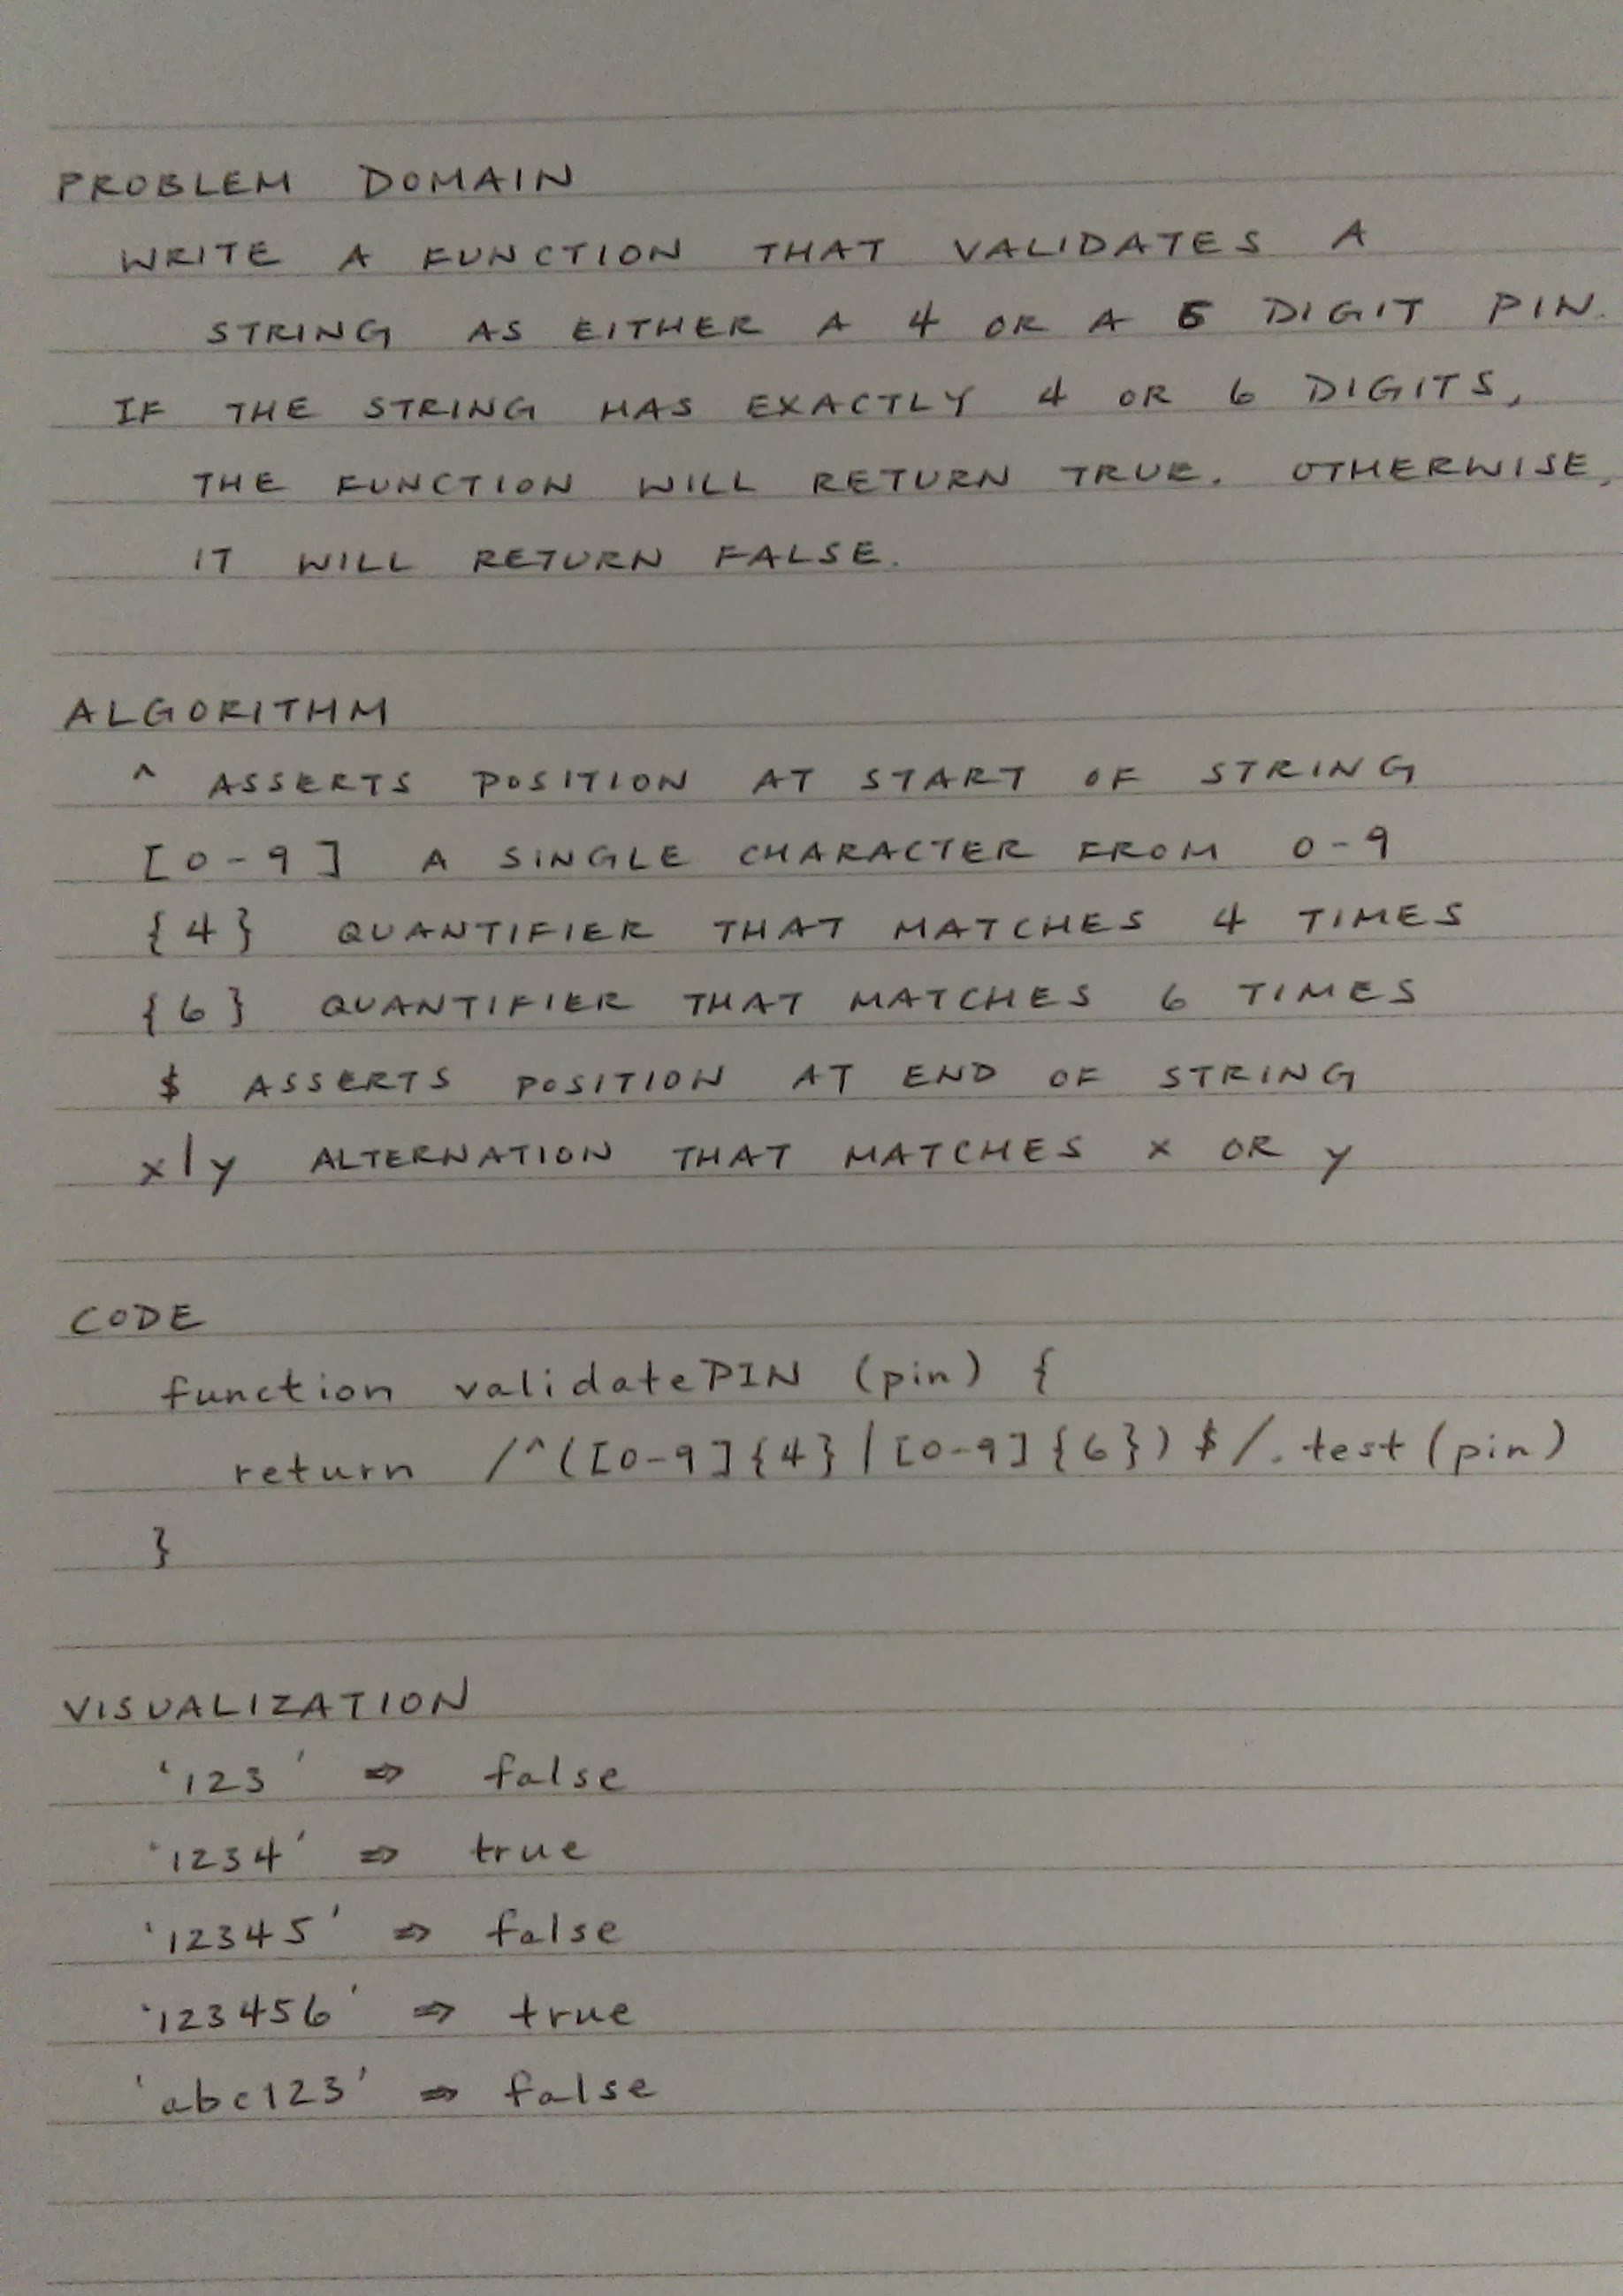 PROBLEM DOMAIN
WRITE A FUNCTION THAT VALIDATES A
STRING AS EITHER A 4 OR A 6 DIGIT PIN.
IF THE STRING HAS EXACTLY 4 OR 6 DIGITS,
THE FUNCTION WILL RETURN TRUE. OTHERWISE,
IT WILL RETURN FALSE.
ALGORITHM
^ ASSERTS POSITION AT START OF STRING
[0-9] A SINGLE CHARACTER FROM 0-9
{4} QUANTIFIER THAT MATCHES 4 TIMES
{6} QUANTIFIER THAT MATCHES 6 TIMES
$ ASSERTS POSITION AT END OF STRING
x|y ALTERNATION THAT MATCHES x OR y
CODE
function validatePIN (pin) {
return /^([0-9]{4}|[0-9]{6})$/.test(pin)
}
VISUALIZATION
'123' => false
'1234' => true
'12345' => false
'123456' => true
'abc123' => false